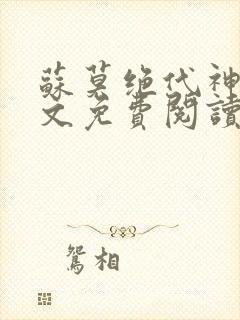 蘇莫绝代神
文免費閱讀
鴛相